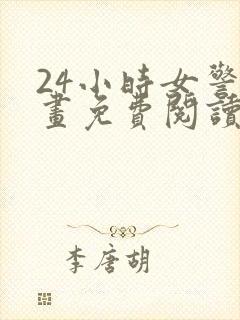 24小時女警
畫免費閱讀
李唐胡